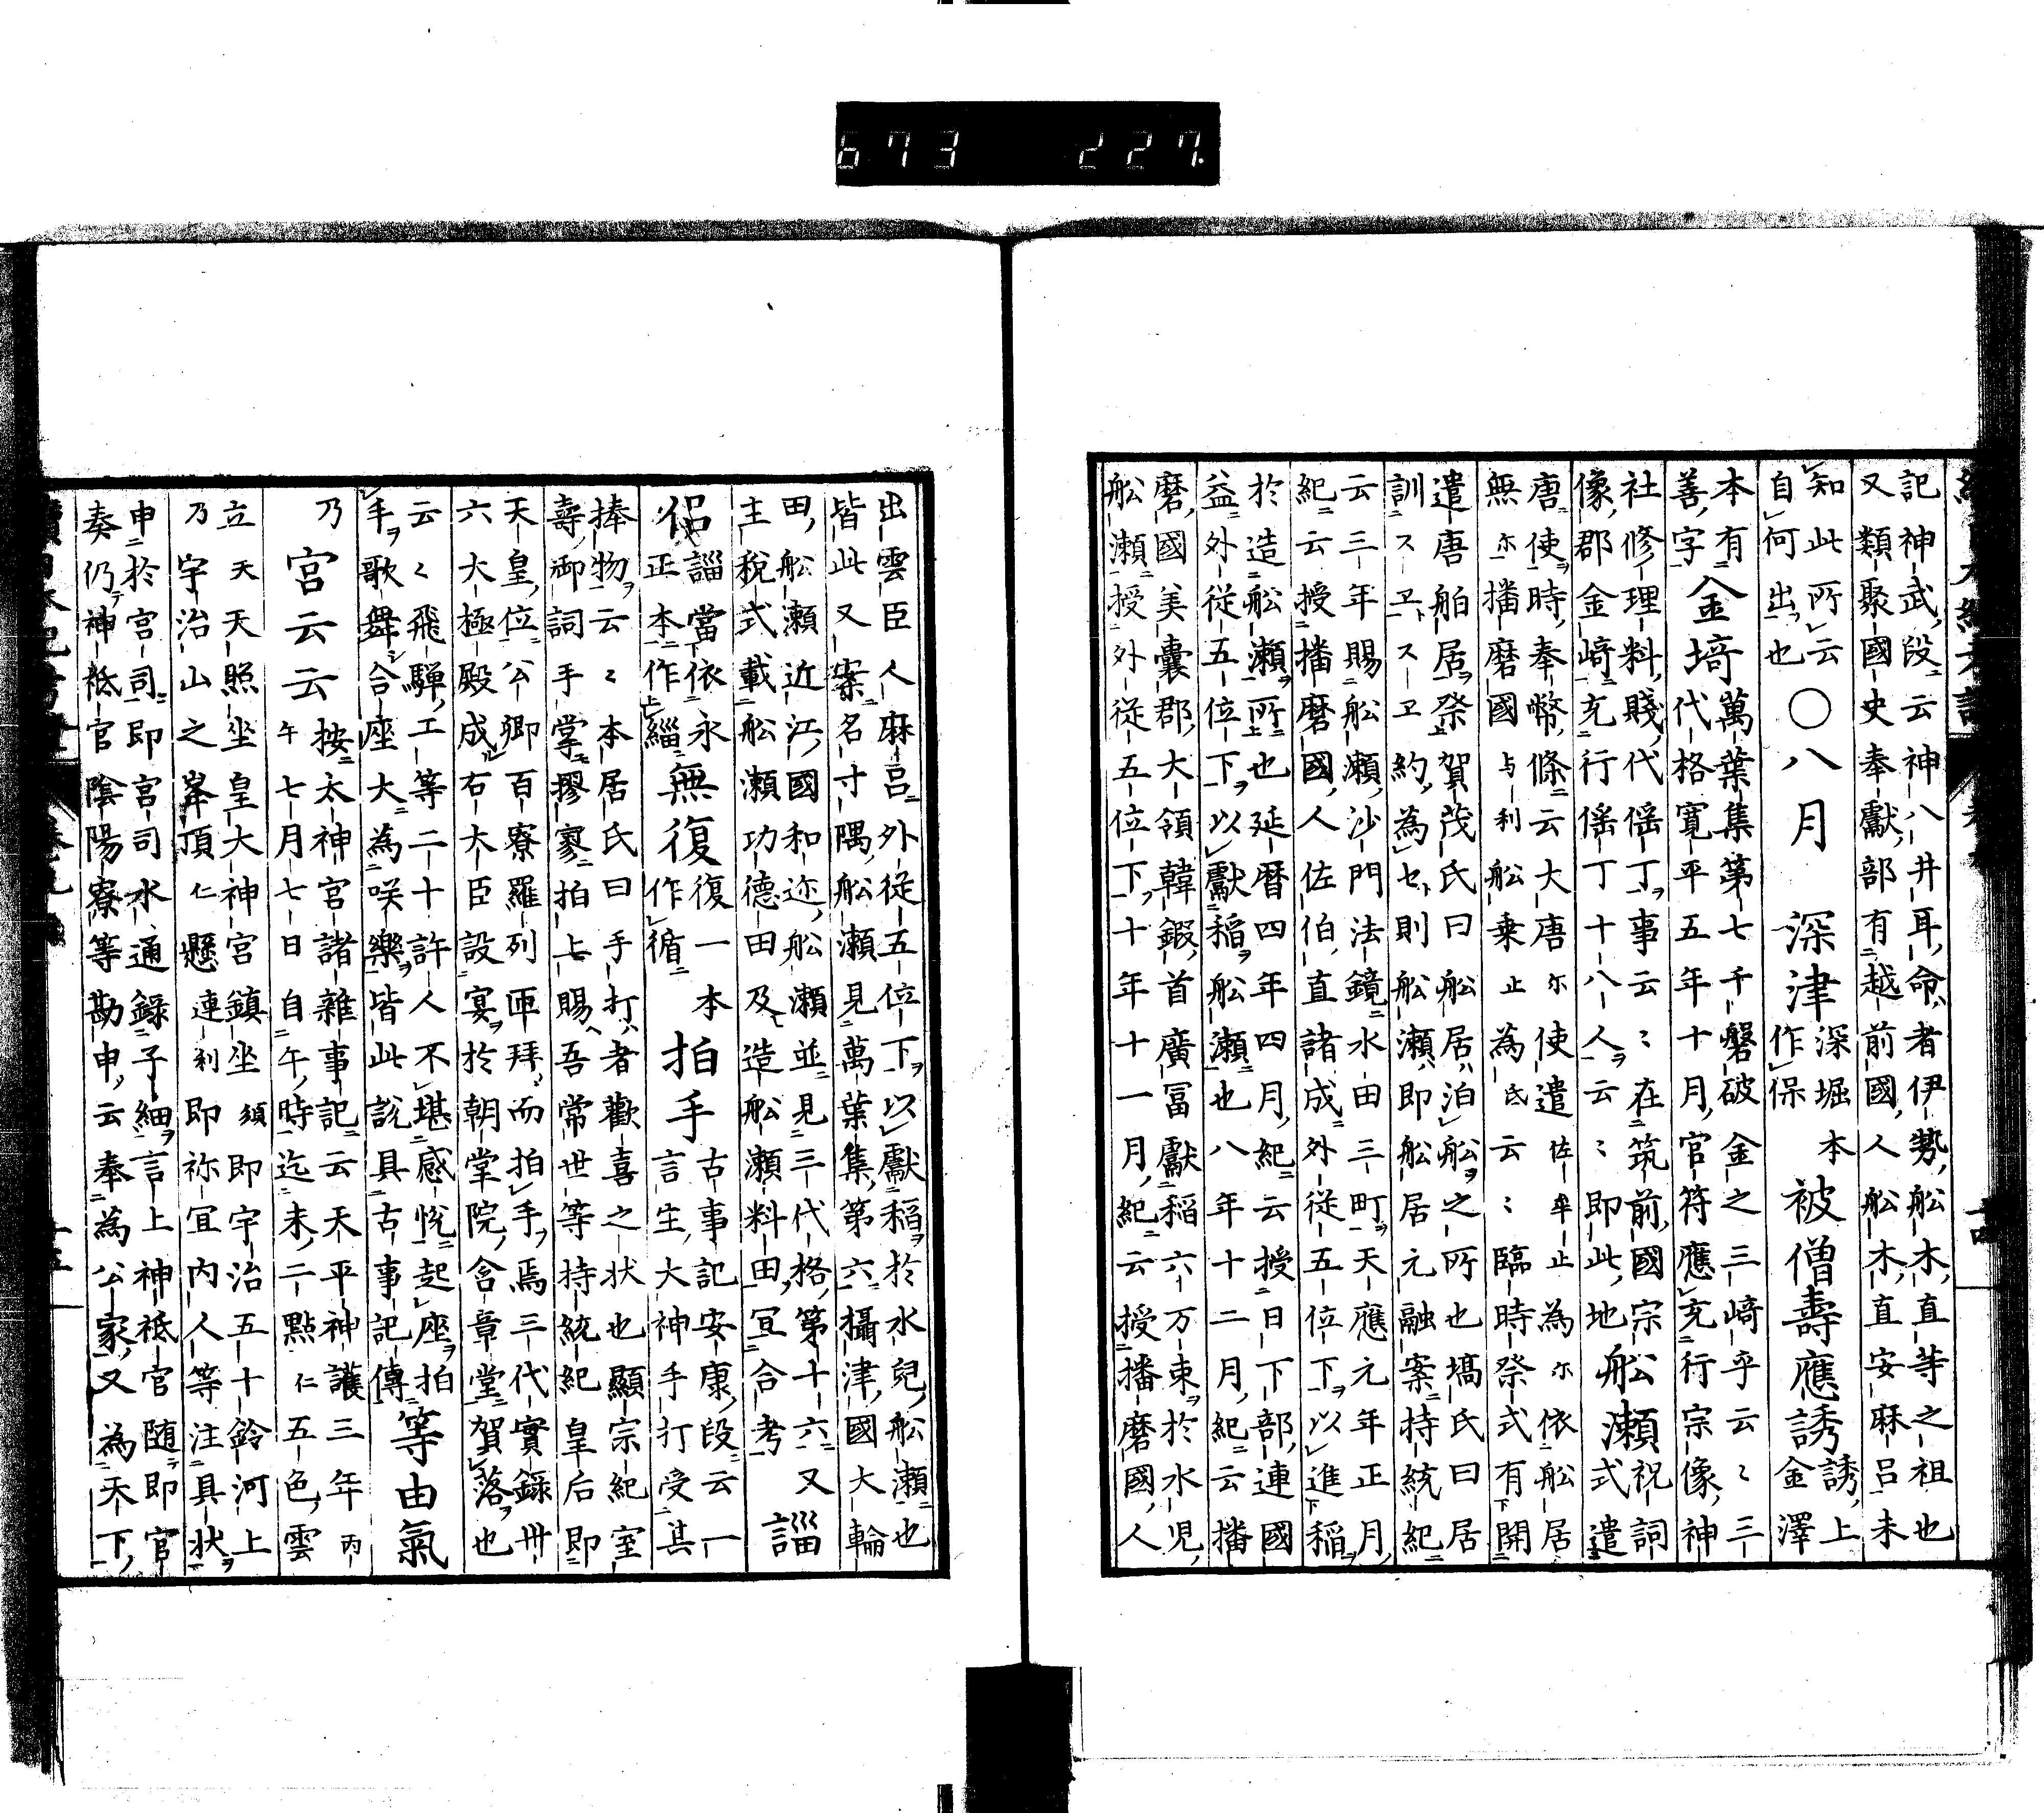 673 227.
記神武段云神八井耳命者伊勢舩木直等之祖也
又類聚國史奉獻部有越前國人舩木直安麻呂未
知此所云
自何出也
〇八月 深津
深堀本
作保
被僧壽應誘
誘上
金澤
本有
善字
金埼
萬葉集第七千磐破金之三﨑乎云〻三
代格寛平五年十月官符應充行宗像神
社修理料賤代徭丁事云〻在筑前國宗
像郡金﨑充行徭丁十八人云〻即此地
舩瀬
祝詞
式遣
唐使時奉幣條云大唐尓使遣佐牟止為尓依舩居
無尓播磨國与利舩乗止為氐云〻臨時祭式有開
遣唐舶居祭賀茂氏曰舩居泊舩之所也塙氏曰居
訓スヱスヱ約為セ則舩瀬即舩居元融案持統紀
云三年賜舩瀬沙門法鏡水田三町天應元年正月
紀云授播磨國人佐伯直諸成外従五位下以進稲
於造舩瀬所也延暦四年四月紀云授日下部連國
益外従五位下以獻稲舩瀬也八年十二月紀云播
磨國美嚢郡大領韓鍜首廣冨獻稲六万束於水児
舩瀬授外従五位下十年十一月紀云授播磨國人
出雲臣人麻呂外従五位下以獻稲於水兒舩瀬也
皆此又案名寸隅舩瀬見萬葉集第六攝津國大輪
田舩瀬近江國和迩舩瀬並見三代格第十六又
主税式載舩瀬功德田及造舩瀬料田宜合考
諨侶
諨當依永
正本作緇
無復
復一本
作循
拍手
古事記安康段云一
言主大神手打受其
捧物云〻本居氏曰手打者歡喜之状也顯宗紀室
壽御詞手掌摎亮拍上賜吾常世等持統紀皇后即
天皇位公卿百寮羅列匝拜而拍手焉三代實錄卅
六大極殿成右大臣設宴於朝堂院含章堂賀落也
云〻飛騨工等二十許人不堪感悦起座拍
手歌舞合座大為咲樂皆此說具古事記傳
等由氣
乃宮云云
按太神宮諸雜事記云天平神護三年丙
午七月七日自午時迄未二點仁五色雲
立天天照坐皇大神宮鎮坐須即宇治五十鈴河上
乃宇治山之峯頂仁懸連利即祢宜内人等注具状
申於宮司即宮司水通錄子細言上神祇官随即官
奏仍神祇官陰陽寮等勘申云奉為公家又為天下